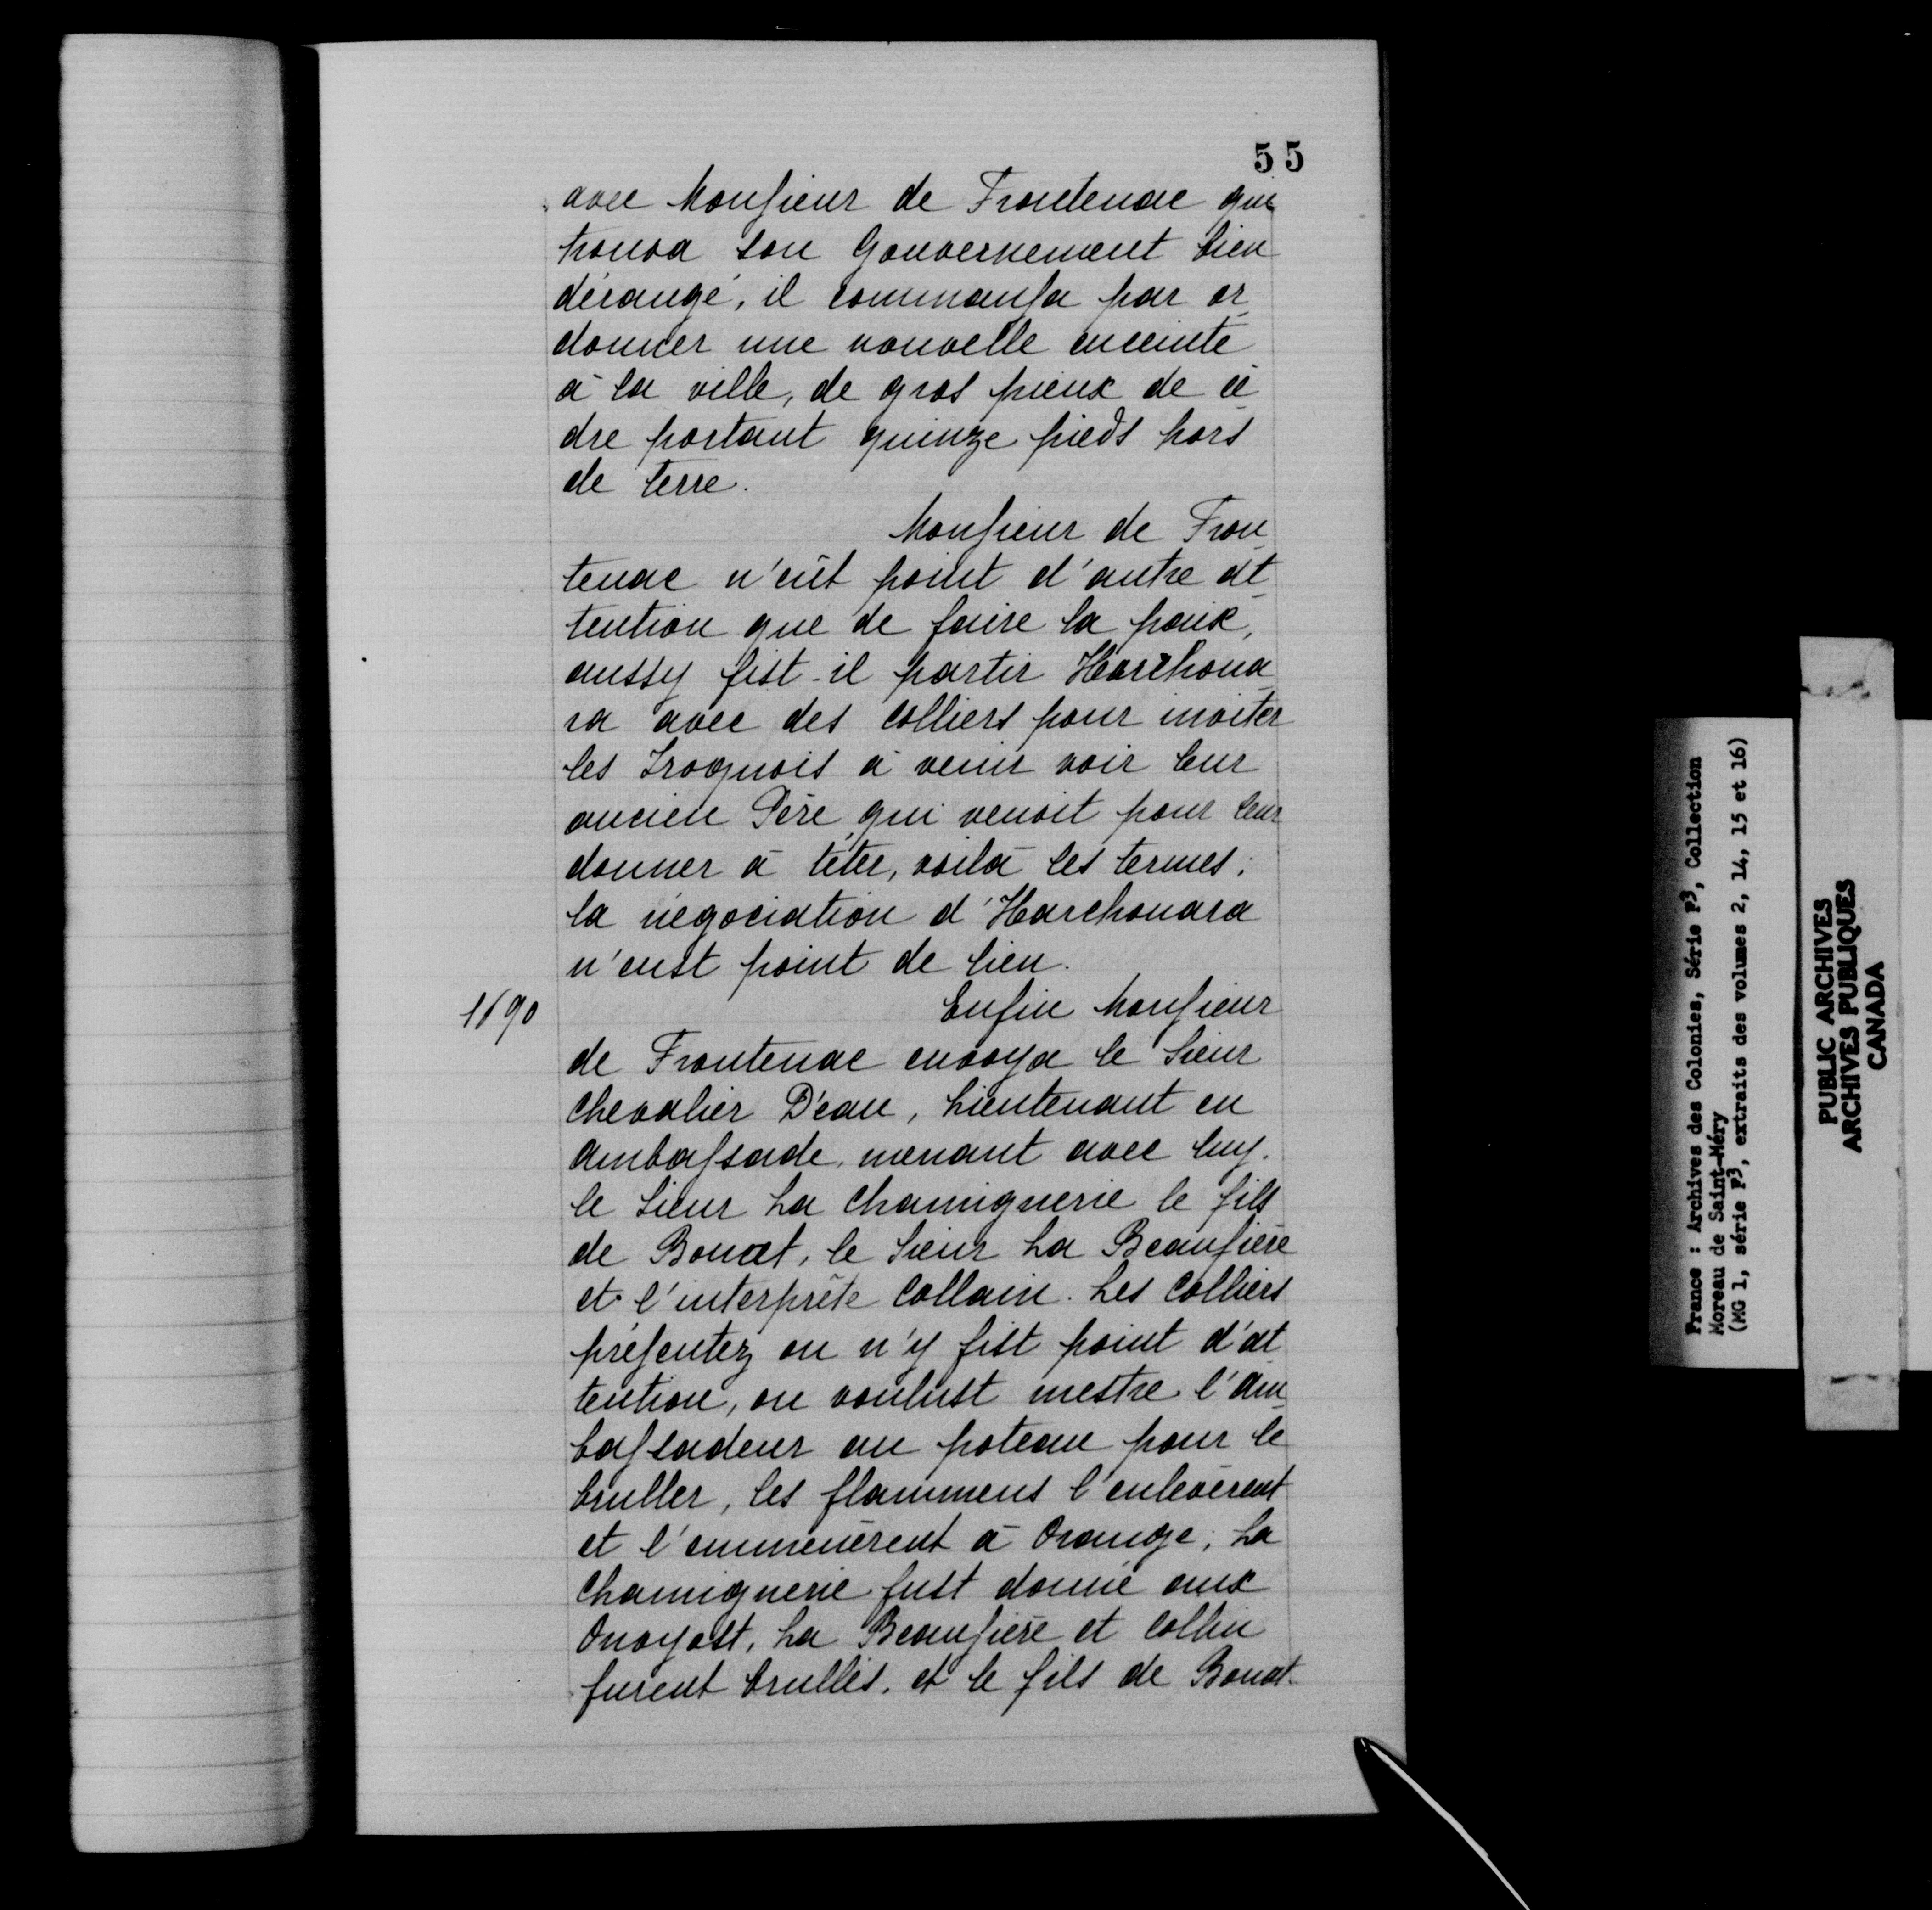 55
avec Monsieur de Frontenac qui
trouva son Gouvernement bien
dérangé, il commansa par or
donner une nouvelle enceinte
à la ville, de gros pieux de cè
dre portant quinze pieds hors
de terre.
Monsieur de Fron
tenac n'eût point d'autre at
tention que de faire la paix,
aussy fist-il partir Harehoua
ra avec des colliers pour inviter
les Iroquois à venir voir leur
ancien Père qui venoit pour leur
donner à téter, voilà les termes;
la négociation d'Harehouara
n'eust point de lieu.
1690
Enfin Monsieur
de Frontenac envoya le Sieur
Chevalier D'eau, Lieutenant en
ambassade, menant avec luy.
le Sieur La Chauvignerie le fils
de Bouat, le Sieur La Beausière
et l'interprête Collain. Les Colliers
présentez on n'y fist point d'at
tention, on voulust mestre l'am
bassadeur au poteau pour le
bruller, les flammens l'enlevèrent
et l'emmenèrent à Orange; La
Chauvignerie fust donné aux
Onoyost, La Beausière et Collin
furent brullés, et le fils de Bouat
France : Archives des Colonies, Série F3, Collection
Moreau de Saint-Méry
(MG 1, série F3, extraits des volumes 2, 14, 15 et 16)
PUBLIC ARCHIVES
ARCHIVES PUBLIQUES
CANADA